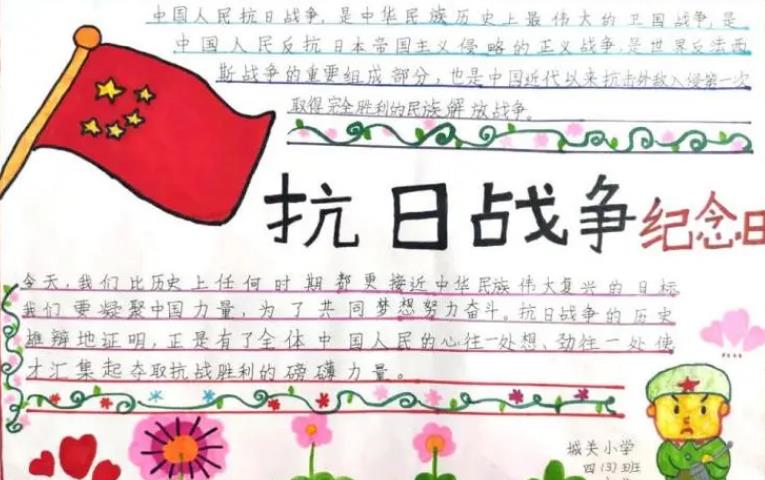 中国人民抗日战争，是中华民族历史上最伟大的卫国战争，是
中国人民反抗日本帝国主义侵略的正义战争，是世界反法西
斯战争的重要组成部分，也是中国近代以来抗击外敌入侵第一次
取得完全胜利的民族解放战争。
抗日战争纪念日
今天，我们比历史上任何时期都更接近中华民族伟大复兴的目标
我们要凝聚中国力量，为了共同梦想努力奋斗。抗日战争的历史
雄辩地证明，正是有了全体中国人民的心往一处想、劲往一处使
才汇集起夺取抗战胜利的磅礴力量。
城关小学
四(3)班